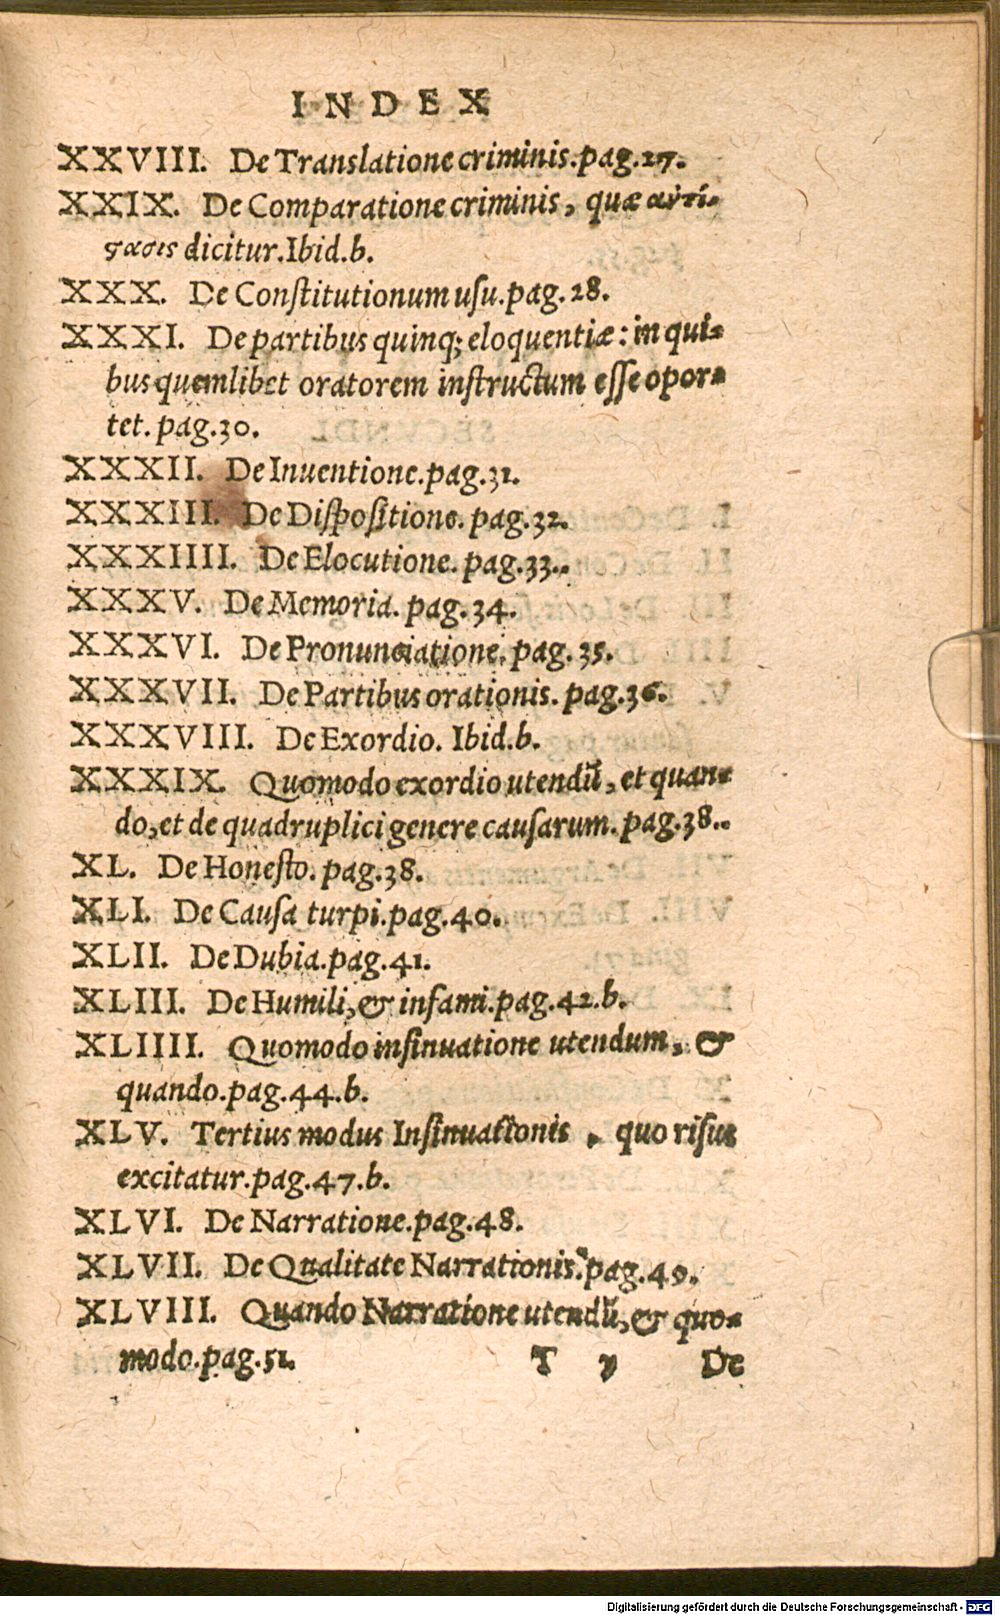 INDEX
XXVIII. De Translatione criminis. pag. 27.
XXIX. De Comparatione criminis, quæ αντί-
ϛασις dicitur. Ibid. b.
XXX. De Constitutionum usu. pag. 28.
XXXI. De partibus quinq; eloquentiæ: in qui-
bus quemlibet oratorem instructum esse opor-
tet. pag. 30.
XXXII. De Inuentione. pag. 31.
XXXIII. De Dispositione. pag. 32.
XXXIIII. De Elocutione. pag. 33..
XXXV. De Memoria. pag. 34.
XXXVI. De Pronunciatione. pag. 35.
XXXVII. De Partibus orationis. pag. 36.
XXXVIII. De Exordio. Ibid. b.
XXXIX. Quomodo exordio utendū, et quan-
do, et de quadruplici genere causarum. pag. 38..
XL. De Honesto. pag. 38.
XLI. De Causa turpi. pag. 40.
XLII. De Dubia. pag. 41.
XLIII. De Humili, & infami. pag. 42. b.
XLIIII. Quomodo insinuatione utendum, &
quando. pag. 44. b.
XLV. Tertius modus Insinuationis, quo risus
excitatur. pag. 47. b.
XLVI. De Narratione. pag. 48.
XLVII. De Qualitate Narrationis. pag. 49.
XLVIII. Quando Narratione utendū, & quo-
modo. pag. 51.
T y De
Digitalisierung gefördert durch die Deutsche Forschungsgemeinschaft - DFG